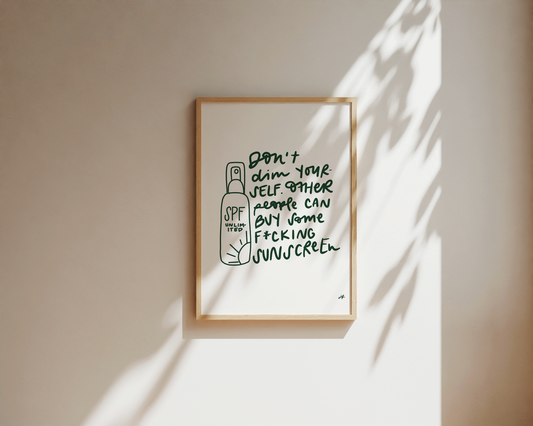 Don't
dim YOUR-
SELF. OTHER
people CAN
BUY some
F*CKING
SUNSCREEN
SPF
UNLIM-
ITED